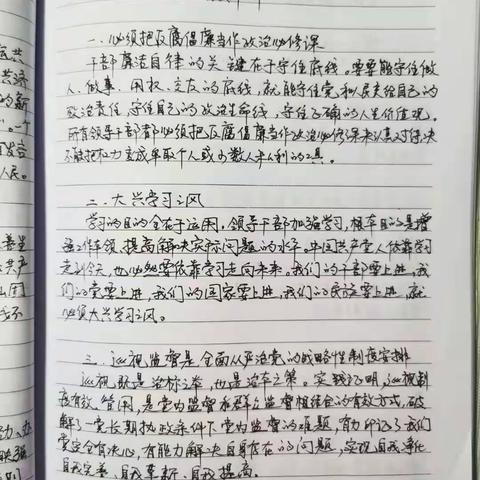 一、必须把反腐倡廉当作政治必修课
干部廉洁自律的关键在于守住底线。要要能守住做
人、做事、用权、交友的底线，就能守住党和人民交给自己的
政治责任，守住自己的政治生命线，守住正确的人生价值观。
所有领导干部都必须把反腐倡廉当作政治必修课来认真对待，决
不能把权力变成牟取个人或少数人私利的工具。
二、大兴学习之风
学习的目的全在于运用，领导干部加强学习，根本目的是增
强工作本领、提高解决实际问题的水平。中国共产党人依靠学习
走到今天，也必然要依靠学习走向未来。我们的干部要上进，我
们的党要上进，我们的国家要上进，我们的民族要上进，就
必须大兴学习之风。
三、巡视监督是全面从严治党的战略性制度安排
巡视既是治标之举，也是治本之策。实践证明，巡视制
度有效、管用，是党内监督和群众监督相结合的有效方式，破
解了一党长期执政条件下党内监督的难题，有力印证了我们
党完全有决心、有能力解决自身存在的问题，实现自我净化、
自我完善、自我革新、自我提高。